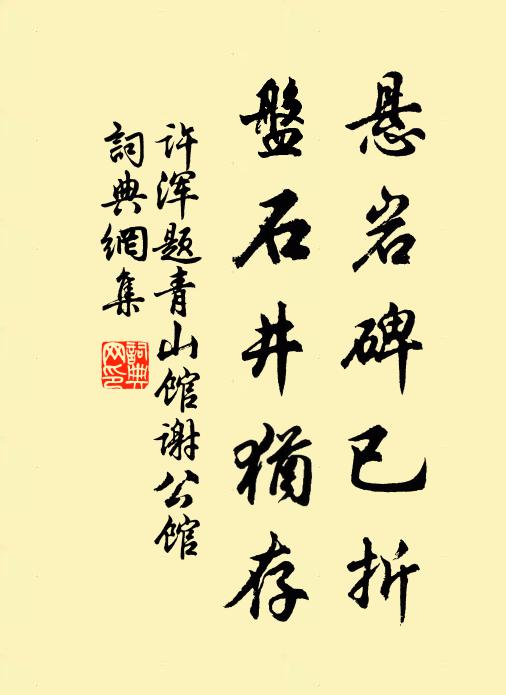 悬岩碑已折
盤石井猶存
许浑题青山馆谢公馆
詞典網集
詞典
网印